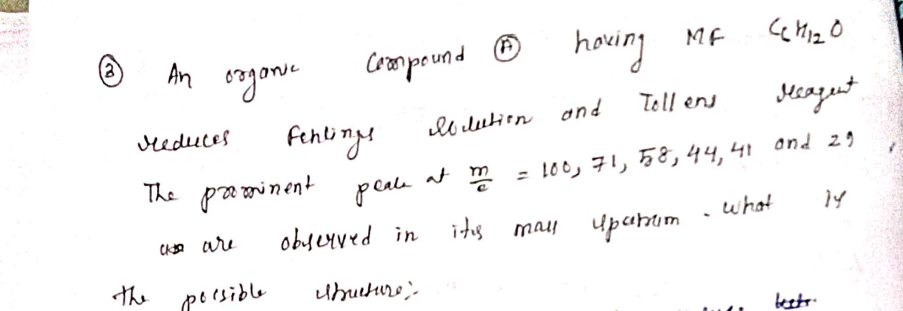 ② An organic Compound Ⓐ having MF C6H12O
reduces Fehlings solution and Tollens reagent
The prominent peak at m/e = 100, 71, 58, 44, 41 and 29
are observed in its mass spectrum. what is
the possible structure:-